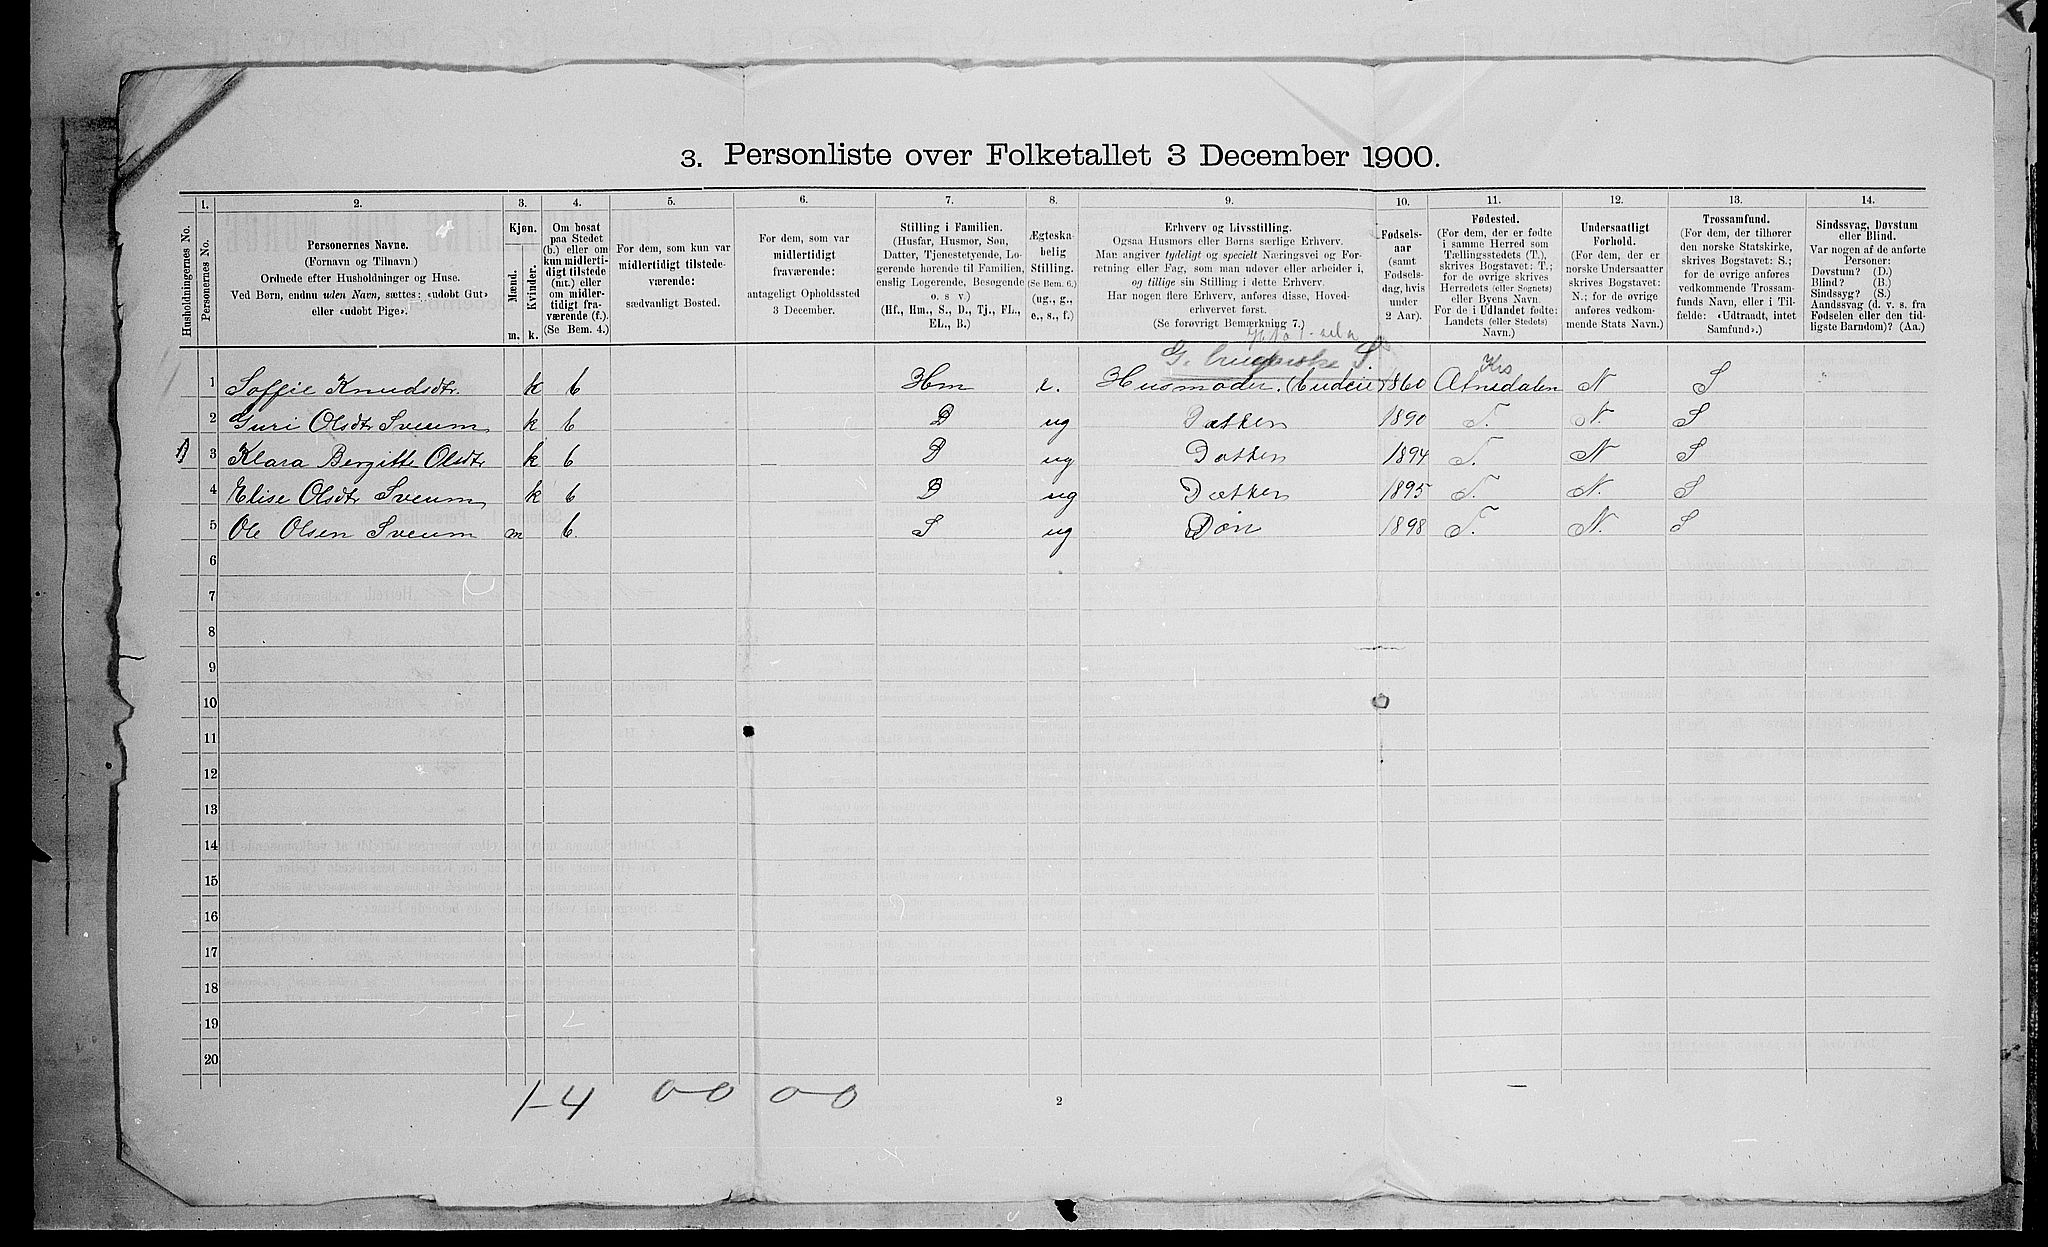 3. Personliste over Folketallet 3 December 1900.
1. 2. 3. 4. 5. 6. 7. 8. 9. 10. 11. 12. 13. 14.
Husholdningernes No.
Personernes No.
Personernes Navne.
(Fornavn og Tilnavn.)
Ordnede efter Husholdninger og Huse.
Ved Børn, endnu uden Navn, sættes: «udøbt Gut»
eller «udøbt Pige».
Kjøn.
Mænd.
Kvinder.
m. k.
Om bosat
paa Stedet
(b.) eller om
kun midlerti-
digt tilstede
(mt.) eller
om midler-
tidigt fra-
værende (f.).
(Se Bem. 4.)
For dem, som kun var
midlertidigt tilstede-
værende:
sædvanligt Bosted.
For dem, som var
midlertidigt
fraværende:
antageligt Opholdssted
3 December.
Stilling i Familien.
(Husfar, Husmor, Søn,
Datter, Tjenestetyende, Lo-
gerende hørende til Familien,
enslig Logerende, Besøgende
o. s. v.)
(Hf., Hm., S., D., Tj., FL.,
EL., B.)
Ægteska-
belig
Stilling.
(Se Bem. 6.)
(ug., g.,
e., s., f.)
Erhverv og Livsstilling.
Ogsaa Husmors eller Børns særlige Erhverv.
Man angiver tydeligt og specielt Næringsvei og For-
retning eller Fag, som man udøver eller arbeider i,
og tillige sin Stilling i dette Erhverv.
Har nogen flere Erhverv, anføres disse, Hoved-
erhvervet først.
(Se forøvrigt Bemærkning 7.)
Fødsels-
aar
(samt
Fødsels-
dag, hvis
under
2 Aar).
Fødested.
(For dem, der er fødte
i samme Herred som
Tællingsstedets (T.),
skrives Bogstavet: T.;
for de øvrige skrives
Herredets (eller Sognets)
eller Byens Navn.
For de i Udlandet fødte:
Landets (eller Stedets)
Navn.)
Undersaatligt
Forhold.
(For dem, der er
norske Undersaatter
skrives Bogstavet:
N.; for de øvrige
anføres vedkom-
mende Stats Navn.)
Trossamfund.
(For dem, der tilhører
den norske Statskirke,
skrives Bogstavet: S.;
for de øvrige anføres
vedkommende Trossam-
funds Navn, eller i Til-
fælde: «Udtraadt, intet
Samfund».)
Sindssvag, Døvstum
eller Blind.
Var nogen af de anførte
Personer:
Døvstum? (D.)
Blind? (B.)
Sindssyg? (S.)
Aandssvag (d. v. s. fra
Fødselen eller den tid-
ligste Barndom)? (Aa.)
Krs
1 Soffie Knudsdtr. k b Hm e. Husmoder. 1860 Atnedalen N S
2 Guri Olsdtr Sveum k b D ug Datter 1890 T. N. S
3 Klara Bergitte Olsdtr k b D ug Datter 1894 T. N S
4 Elise Olsdtr Sveum k b D ug Datter 1895 T. N. S
5 Ole Olsen Sveum m b. S ug Søn 1898 T. N. S
6
7
8
9
10
11
12
13
14
15
16
17
18
19
20
1-4 0-0 0-0
2